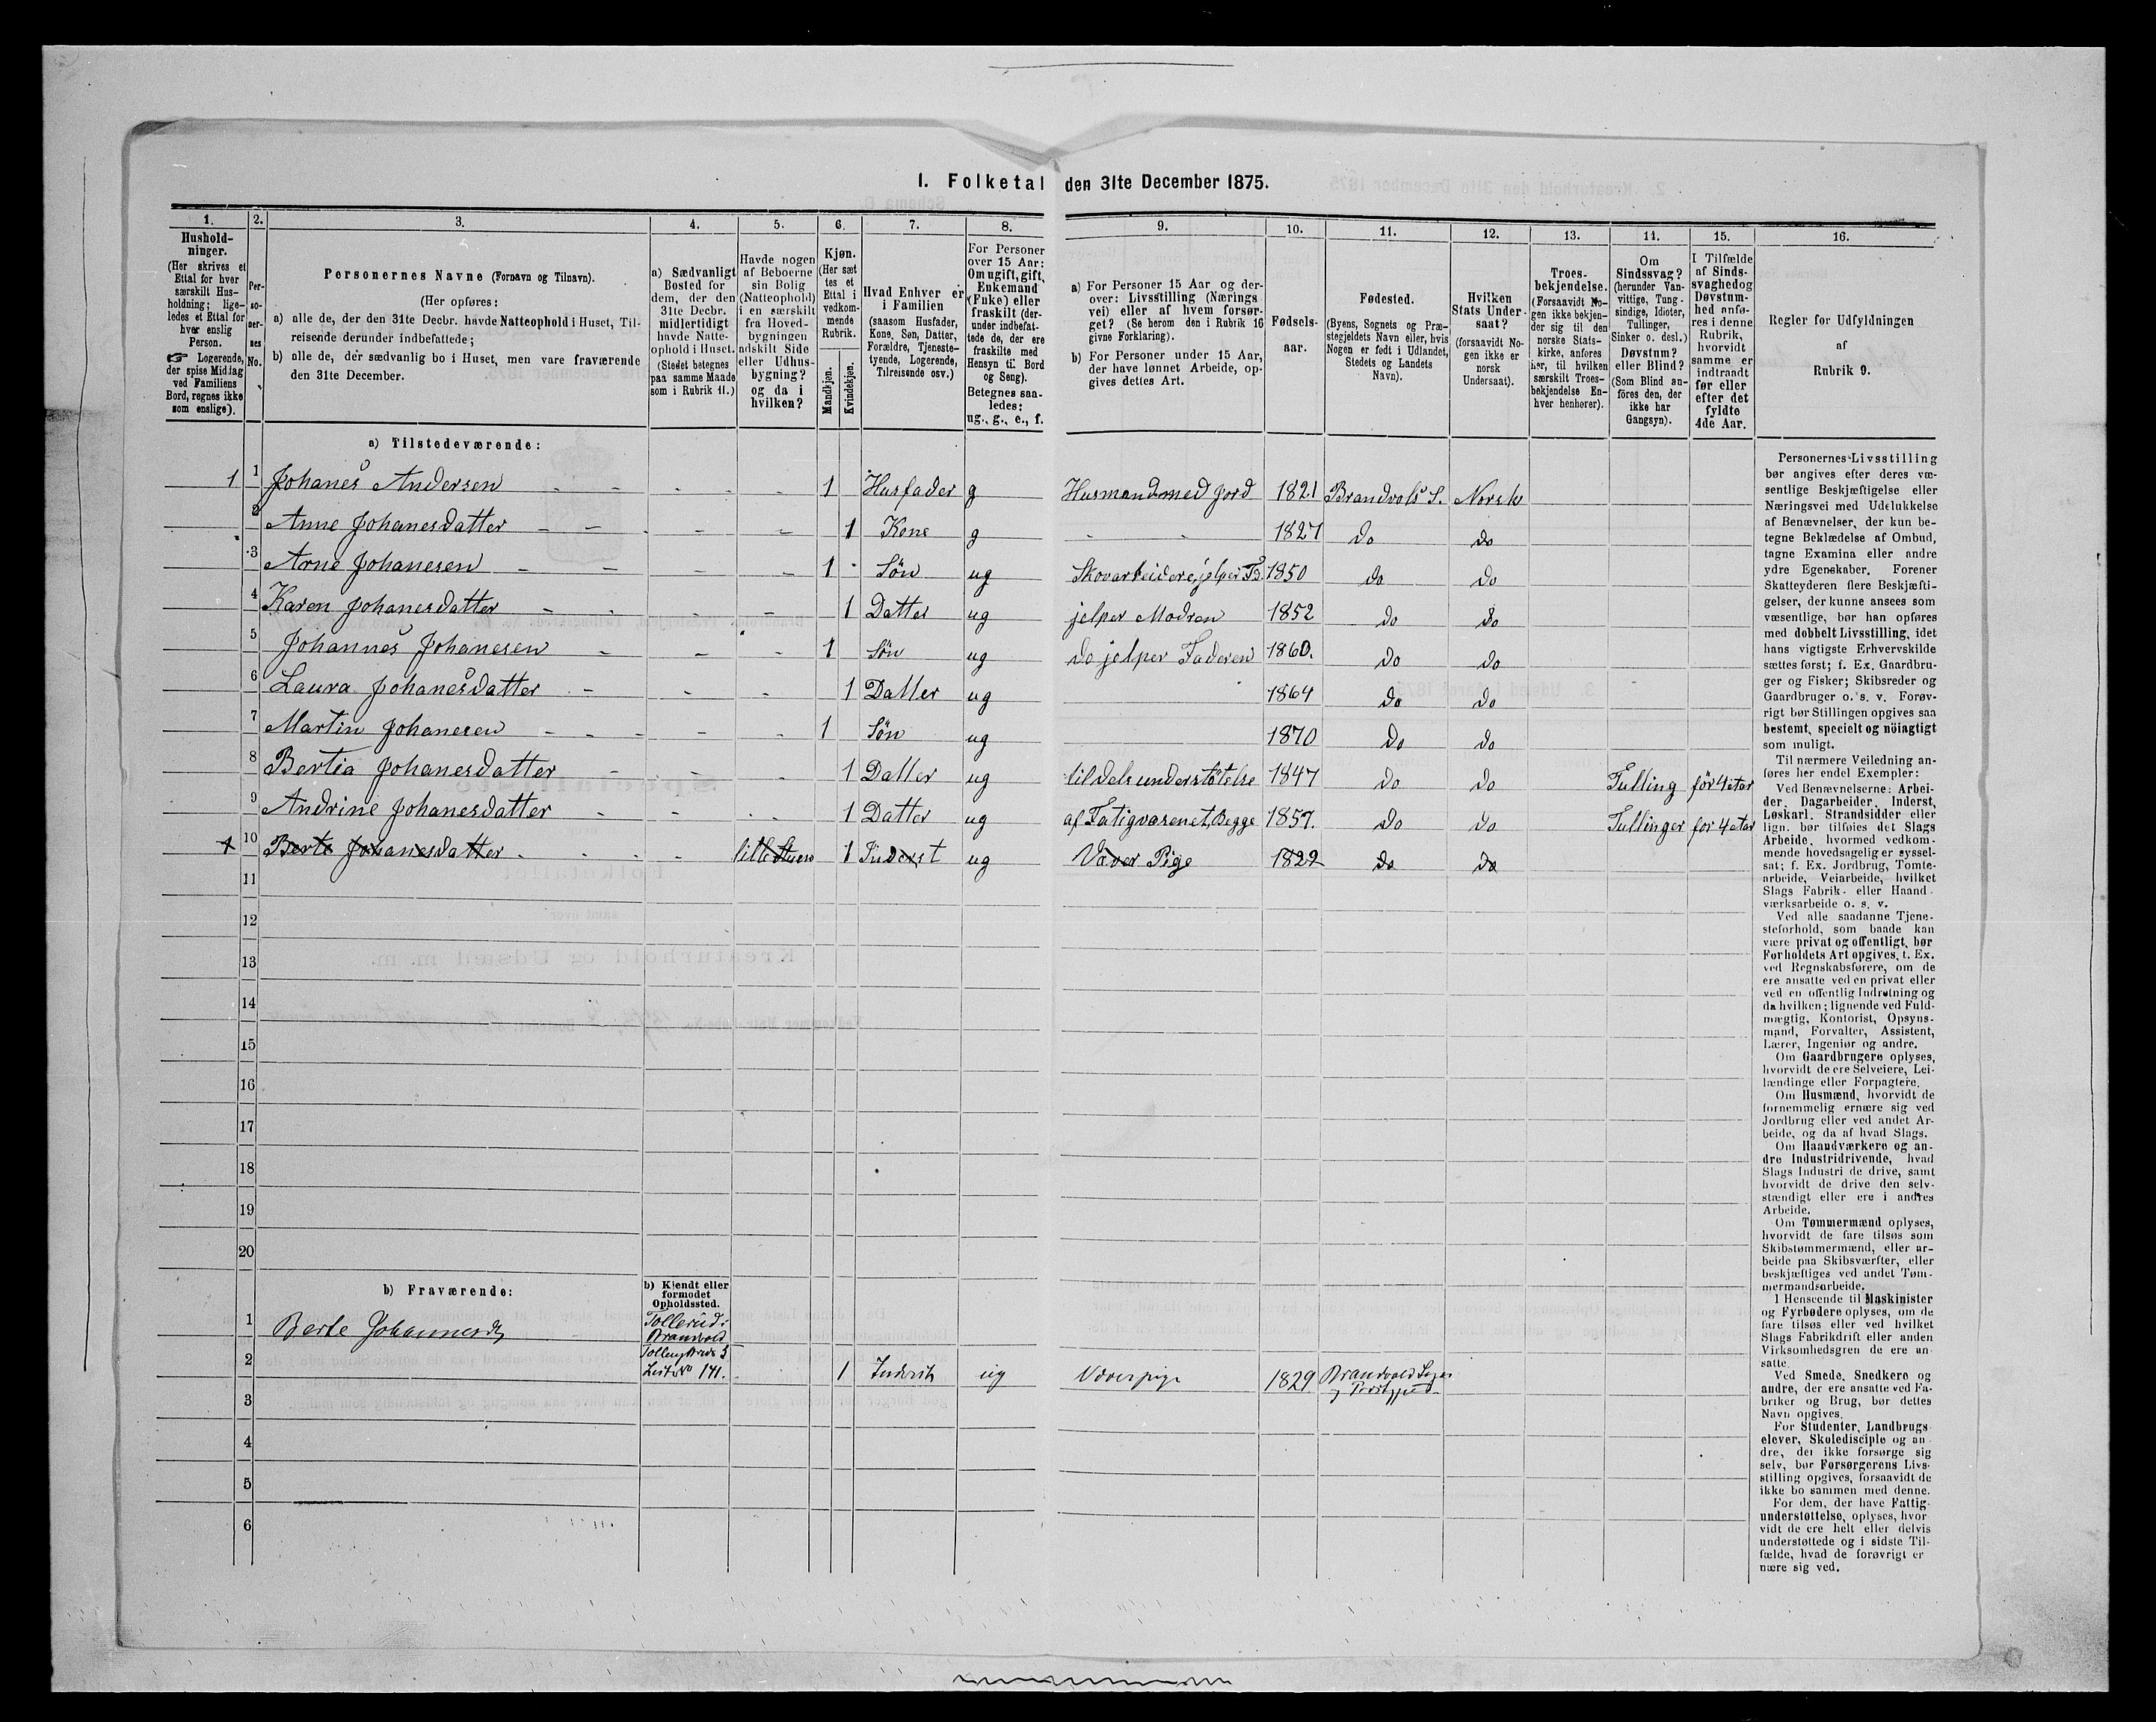 I. Folketal den 31te December 1875.
1.
Hushold-
ninger.
(Her skrives et
Ettal for hver
særskilt Hus-
holdning; lige-
ledes et Ettal for
hver enslig
Person.
☞ Logerende,
der spise Middag
ved Familiens
Bord, regnes ikke
som enslige).
2.
Per-
so-
ner-
nes
No.
3.
Personernes Navne (Fornavn og Tilnavn).
(Her opføres:
a) alle de, der den 31te Decbr. havde Natteophold i Huset, Til-
reisende derunder indbefattede;
b) alle de, der sædvanlig bo i Huset, men vare fraværende
den 31te December.
4.
a) Sædvanligt
Bosted for
dem, der den
31te Decbr.
midlertidigt
havde Natte-
ophold i Huset.
(Stedet betegnes
paa samme Maade
som i Rubrik 11.)
5.
Havde nogen
af Beboerne
sin Bolig
(Natteophold)
i en særskilt
fra Hoved-
bygningen
adskilt Side
eller Udhus-
bygning?
og da i
hvilken?
6.
Kjøn.
(Her sæt
tes et
Ettal i
vedkom-
mende
Rubrik.
Mandkjøn.
Kvindekjøn.
7.
Hvad Enhver er
i Familien
(saasom Husfader,
Kone, Søn, Datter,
Forældre, Tjeneste-
tyende, Logerende,
Tilreisende osv.)
8.
For Personer
over 15 Aar:
Om ugift, gift,
Enkemand
(Enke) eller
fraskilt (der-
under indbefat-
tede de, der ere
fraskilte med
Hensyn til Bord
og Seng).
Betegnes saa-
ledes:
ug., g., e., f.
9.
a) For Personer 15 Aar og der-
over: Livsstilling (Nærings
vei) eller af hvem forsør-
get? (Se herom den i Rubrik 16
givne Forklaring).
b) For Personer under 15 Aar,
der have lønnet Arbeide, op-
gives dettes Art.
10.
Fødsels-
aar.
11.
Fødested.
(Byens, Sognets og Præ-
stegjeldets Navn eller, hvis
Nogen er født i Udlandet,
Stedets og Landets
Navn).
12.
Hvilken
Stats Under-
saat?
(forsaavidt No-
gen ikke er
norsk
Undersaat).
13.
Troes-
bekjendelse.
(Forsaavidt No-
gen ikke bekjen-
der sig til den
norske Stats-
kirke, anføres
her, til hvilken
særskilt Troes-
bekjendelse En-
hver henhører).
14.
Om
Sindssvag?
(herunder Van-
vittige, Tung-
sindige, Idioter,
Tullinger,
Sinker o. desl.)
Døvstum?
eller Blind?
(Som Blind an-
føres den, der
ikke har
Gangsyn).
15.
I Tilfælde
af Sinds-
svaghed og
Døvstum-
hed anfø-
res i denne
Rubrik,
hvorvidt
samme er
indtraadt
før eller
efter det
fyldte
4de Aar.
16.
Regler for Udfyldningen
af
Rubrik 9.
a) Tilstedeværende:
1 1 Johanes Andersen 1 Husfader g Husmand med Jord 1821 Brandvols S. Norsk
2 Anne Johanesdatter 1 Kone g 1827 do do
3 Arne Johanesen 1 Søn ug Skovarbeidere, jelper 1850 do do
4 Karen Johanesdatter 1 Datter ug jelper Modren 1852 do do
5 Johannes Johanesen 1 Søn ug do jelper Faderen 1860. do do
6 Laura Johanesdatter 1 Datter ug 1864 do do
7 Martin Johanesen 1 Søn ug 1870 do do
8 Bertia Johanesdatter 1 Datter ug tildels understøtelse 1847 do do Tulling før 4 etar
9 Andrine Johanesdatter 1 Datter ug af Fatigvæsenet, Begge 1857. do do Tullinger før 4 etar
1 10 Berte Johanesdatter lille Stuen 1 Inderst ug Væver Pige 1829 do do
11
12
13
14
15
16
17
18
19
20
b) Fraværende:
b) Kjendt eller
formodet
Opholdssted.
1 Berte Johannesd Tollerud i
Branvold
2 Tællingskreds 5
List No 141. 1 Inderst ug Væverpige 1829 Brandvold Sogn
og Prestgjeld
3
4
5
6
Personernes Livsstilling
bør angives efter deres væ-
sentlige Beskjæftigelse eller
Næringsvei med Udelukkelse
af Benævnelser, der kun be-
tegne Beklædelse af Ombud,
tagne Examina eller andre
ydre Egenskaber. Forener
Skatteyderen flere Beskjæfti-
gelser, der kunne ansees som
væsentlige, bør han opføres
med dobbelt Livsstilling, idet
hans vigtigste Erhvervskilde
sættes først; f. Ex. Gaardbru-
ger og Fisker; Skibsreder og
Gaardbruger o. s. v. Forøv-
rigt bør Stillingen opgives saa
bestemt, specielt og nøiagtigt
som muligt.
Til nærmere Veiledning an-
føres her endel Exempler:
Ved Benævnelserne: Arbei-
der, Dagarbeider, Inderst,
Løskarl, Strandsidder eller
lign. bør tilføies det Slags
Arbeide, hvormed vedkom-
mende hovedsagelig er syssel-
sat; f. Ex. Jordbrug, Tomte-
arbeide, Veiarbeide, hvilket
Slags Fabrik- eller Haand-
værksarbeide o. s. v.
Ved alle saadanne Tjene-
steforhold, som baade kan
være privat og offentligt, bør
Forholdets Art opgives, f. Ex.
ved Regnskabsførere, om de
ere ansatte ved en privat eller
ved en offentlig Indretning og
da hvilken; lignende ved Fuld-
mægtig, Kontorist, Opsyns-
mand, Forvalter, Assistent,
Lærer, Ingeniør og andre.
Om Gaardbrugere oplyses,
hvorvidt de ere Selveiere, Lei-
lændinge eller Forpagtere.
Om Husmænd, hvorvidt de
fornemmelig ernære sig ved
Jordbrug eller ved andet Ar-
beide, og da af hvad Slags.
Om Haandværkere og an-
dre Industridrivende, hvad
Slags Industri de drive, samt
hvorvidt de drive den selv-
stændigt eller ere i andres
Arbeide.
Om Tømmermænd oplyses,
hvorvidt de fare tilsøs som
Skibstømmermænd, eller ar-
beide paa Skibsværfter, eller
beskjæftiges ved andet Tøm-
mermandsarbeide.
I Henseende til Maskinister
og Fyrbødere oplyses, om de
fare tilsøs eller ved hvilket
Slags Fabrikdrift eller anden
Virksomhedsgren de ere an-
satte.
Ved Smede, Snedkere og
andre, der ere ansatte ved Fa-
briker og Brug, bør dettes
Navn opgives.
For Studenter, Landbrugs-
elever, Skoledisciple og an-
dre, der ikke forsørge sig
selv, bør Forsørgerens Livs-
stilling opgives, forsaavidt de
ikke bo sammen med denne.
For dem, der have Fattig-
understøttelse, oplyses, hvor-
vidt de ere helt eller delvis
understøttede og i sidste Til-
fælde, hvad de forøvrigt er-
nære sig ved.